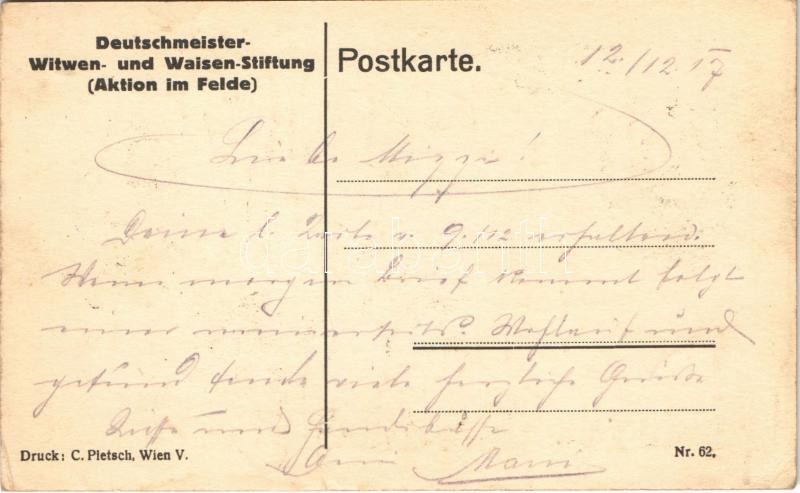 Deutschmeister-
Witwen- und Waisen-Stiftung
(Aktion im Felde)
Postkarte.
12./12 17
Liebe Mizzi!
Deine l. Karte v. 9./12 erhalten.
Wenn morgen Brief kommt folgt
einer meinerseits. Wohlauf und
gesund sende viele herzliche Grüße
Küsse und Handküsse
Druck: C. Pietsch, Wien V.
Nr. 62.
darabanth